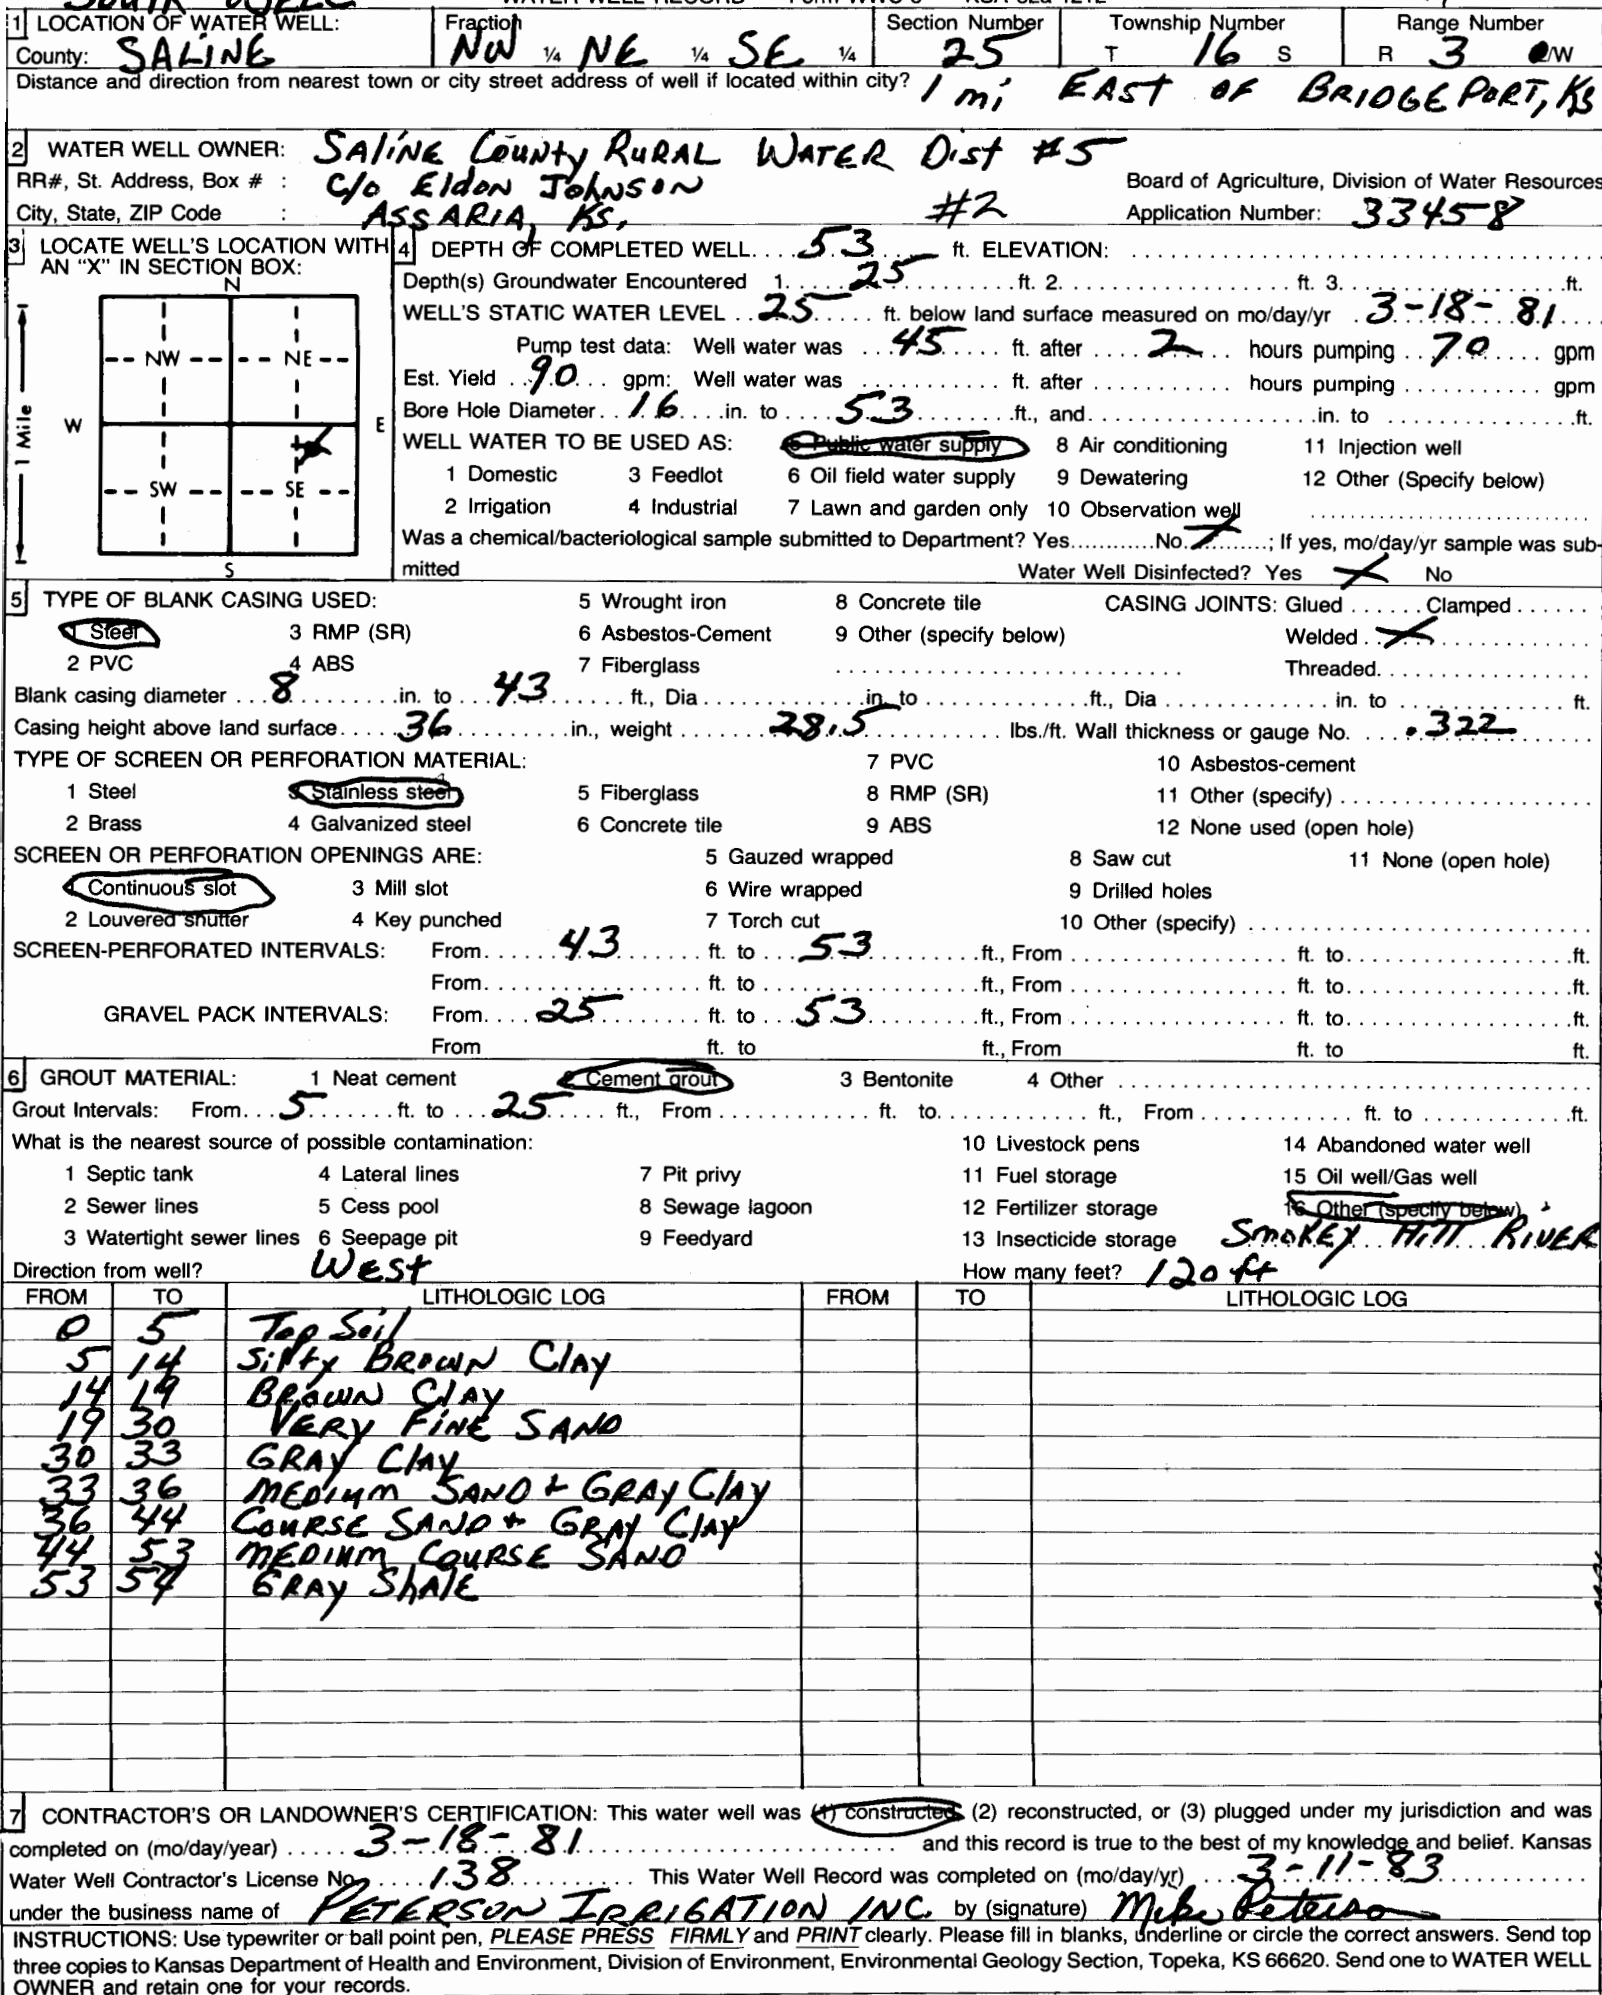 SOUTH WELL WATER WELL RECORD Form WWC-5 KSA 82a-1212
1 LOCATION OF WATER WELL: Fraction Section Number Township Number Range Number
County: SALINE NW ¼ NE ¼ SE ¼ 25 T 16 S R 3 E/W
Distance and direction from nearest town or city street address of well if located within city? 1 mi EAST OF BRIDGEPORT, KS
2 WATER WELL OWNER: SALINE COUNTY RURAL WATER DIST #5
RR#, St. Address, Box # : C/O Eldon JOHNSON Board of Agriculture, Division of Water Resources
City, State, ZIP Code : ASSARIA, KS, #2 Application Number: 33458
3 LOCATE WELL'S LOCATION WITH AN "X" IN SECTION BOX:
N
NW NE
W E
SW SE
S
1 Mile
4 DEPTH OF COMPLETED WELL. . . . 53 . . . . ft. ELEVATION: . . . .
Depth(s) Groundwater Encountered 1. 25 ft. 2. ft. 3. ft.
WELL'S STATIC WATER LEVEL . . 25 . . . ft. below land surface measured on mo/day/yr 3-18-81
Pump test data: Well water was . . . 45 . . . ft. after . . . 2 . . . hours pumping . . 70 . . . gpm
Est. Yield . . 90 . . . gpm: Well water was . . . . ft. after . . . . hours pumping . . . . gpm
Bore Hole Diameter . . 16 . . . in. to . . . 53 . . . ft., and . . . . in. to . . . . ft.
WELL WATER TO BE USED AS: 5 Public water supply 8 Air conditioning 11 Injection well
1 Domestic 3 Feedlot 6 Oil field water supply 9 Dewatering 12 Other (Specify below)
2 Irrigation 4 Industrial 7 Lawn and garden only 10 Observation well . . . .
Was a chemical/bacteriological sample submitted to Department? Yes...........No. X ........; If yes, mo/day/yr sample was sub-
mitted Water Well Disinfected? Yes X No
5 TYPE OF BLANK CASING USED: 5 Wrought iron 8 Concrete tile CASING JOINTS: Glued . . . . . . Clamped . . . . . .
1 Steel 3 RMP (SR) 6 Asbestos-Cement 9 Other (specify below) Welded . X . . . .
2 PVC 4 ABS 7 Fiberglass . . . . Threaded. . . . .
Blank casing diameter . . . 8 . . . . in. to . . 43 . . . . ft., Dia . . . . in. to . . . . ft., Dia . . . . in. to . . . . ft.
Casing height above land surface . . . . 36 . . . . in., weight . . . . 28.5 . . . . lbs./ft. Wall thickness or gauge No. . . .322 . . . .
TYPE OF SCREEN OR PERFORATION MATERIAL: 7 PVC 10 Asbestos-cement
1 Steel 3 Stainless steel 5 Fiberglass 8 RMP (SR) 11 Other (specify) . . . .
2 Brass 4 Galvanized steel 6 Concrete tile 9 ABS 12 None used (open hole)
SCREEN OR PERFORATION OPENINGS ARE: 5 Gauzed wrapped 8 Saw cut 11 None (open hole)
1 Continuous slot 3 Mill slot 6 Wire wrapped 9 Drilled holes
2 Louvered shutter 4 Key punched 7 Torch cut 10 Other (specify) . . . .
SCREEN-PERFORATED INTERVALS: From. . . . 43 . . . . ft. to . . . 53 . . . . ft., From . . . . ft. to. . . . ft.
From. . . . ft. to . . . . ft., From . . . . ft. to. . . . ft.
GRAVEL PACK INTERVALS: From. . . . 25 . . . . ft. to . . . 53 . . . . ft., From . . . . ft. to. . . . ft.
From ft. to ft., From ft. to ft.
6 GROUT MATERIAL: 1 Neat cement 2 Cement grout 3 Bentonite 4 Other . . . .
Grout Intervals: From. . . 5 . . . . ft. to . . . 25 . . . . ft., From . . . . ft. to. . . . ft., From . . . . ft. to . . . . ft.
What is the nearest source of possible contamination: 10 Livestock pens 14 Abandoned water well
1 Septic tank 4 Lateral lines 7 Pit privy 11 Fuel storage 15 Oil well/Gas well
2 Sewer lines 5 Cess pool 8 Sewage lagoon 12 Fertilizer storage 16 Other (specify below)
3 Watertight sewer lines 6 Seepage pit 9 Feedyard 13 Insecticide storage SMOKEY HILL RIVER
Direction from well? WEST How many feet? 120 ft
FROM TO LITHOLOGIC LOG FROM TO LITHOLOGIC LOG
0 5 Top Soil
5 14 Silty BROWN Clay
14 19 BROWN Clay
19 30 VERY FINE SAND
30 33 GRAY Clay
33 36 MEDIUM SAND + GRAY Clay
36 44 COURSE SAND + GRAY Clay
44 53 MEDIUM COURSE SAND
53 54 GRAY ShAlE
7 CONTRACTOR'S OR LANDOWNER'S CERTIFICATION: This water well was (1) constructed, (2) reconstructed, or (3) plugged under my jurisdiction and was
completed on (mo/day/year) . . . . . 3-18-81 . . . . and this record is true to the best of my knowledge and belief. Kansas
Water Well Contractor's License No. . . . 138 . . . . This Water Well Record was completed on (mo/day/yr) . . . 3-11-83 . . . .
under the business name of PETERSON IRRIGATION INC. by (signature) Mike Peterson
INSTRUCTIONS: Use typewriter or ball point pen, PLEASE PRESS FIRMLY and PRINT clearly. Please fill in blanks, underline or circle the correct answers. Send top
three copies to Kansas Department of Health and Environment, Division of Environment, Environmental Geology Section, Topeka, KS 66620. Send one to WATER WELL
OWNER and retain one for your records.